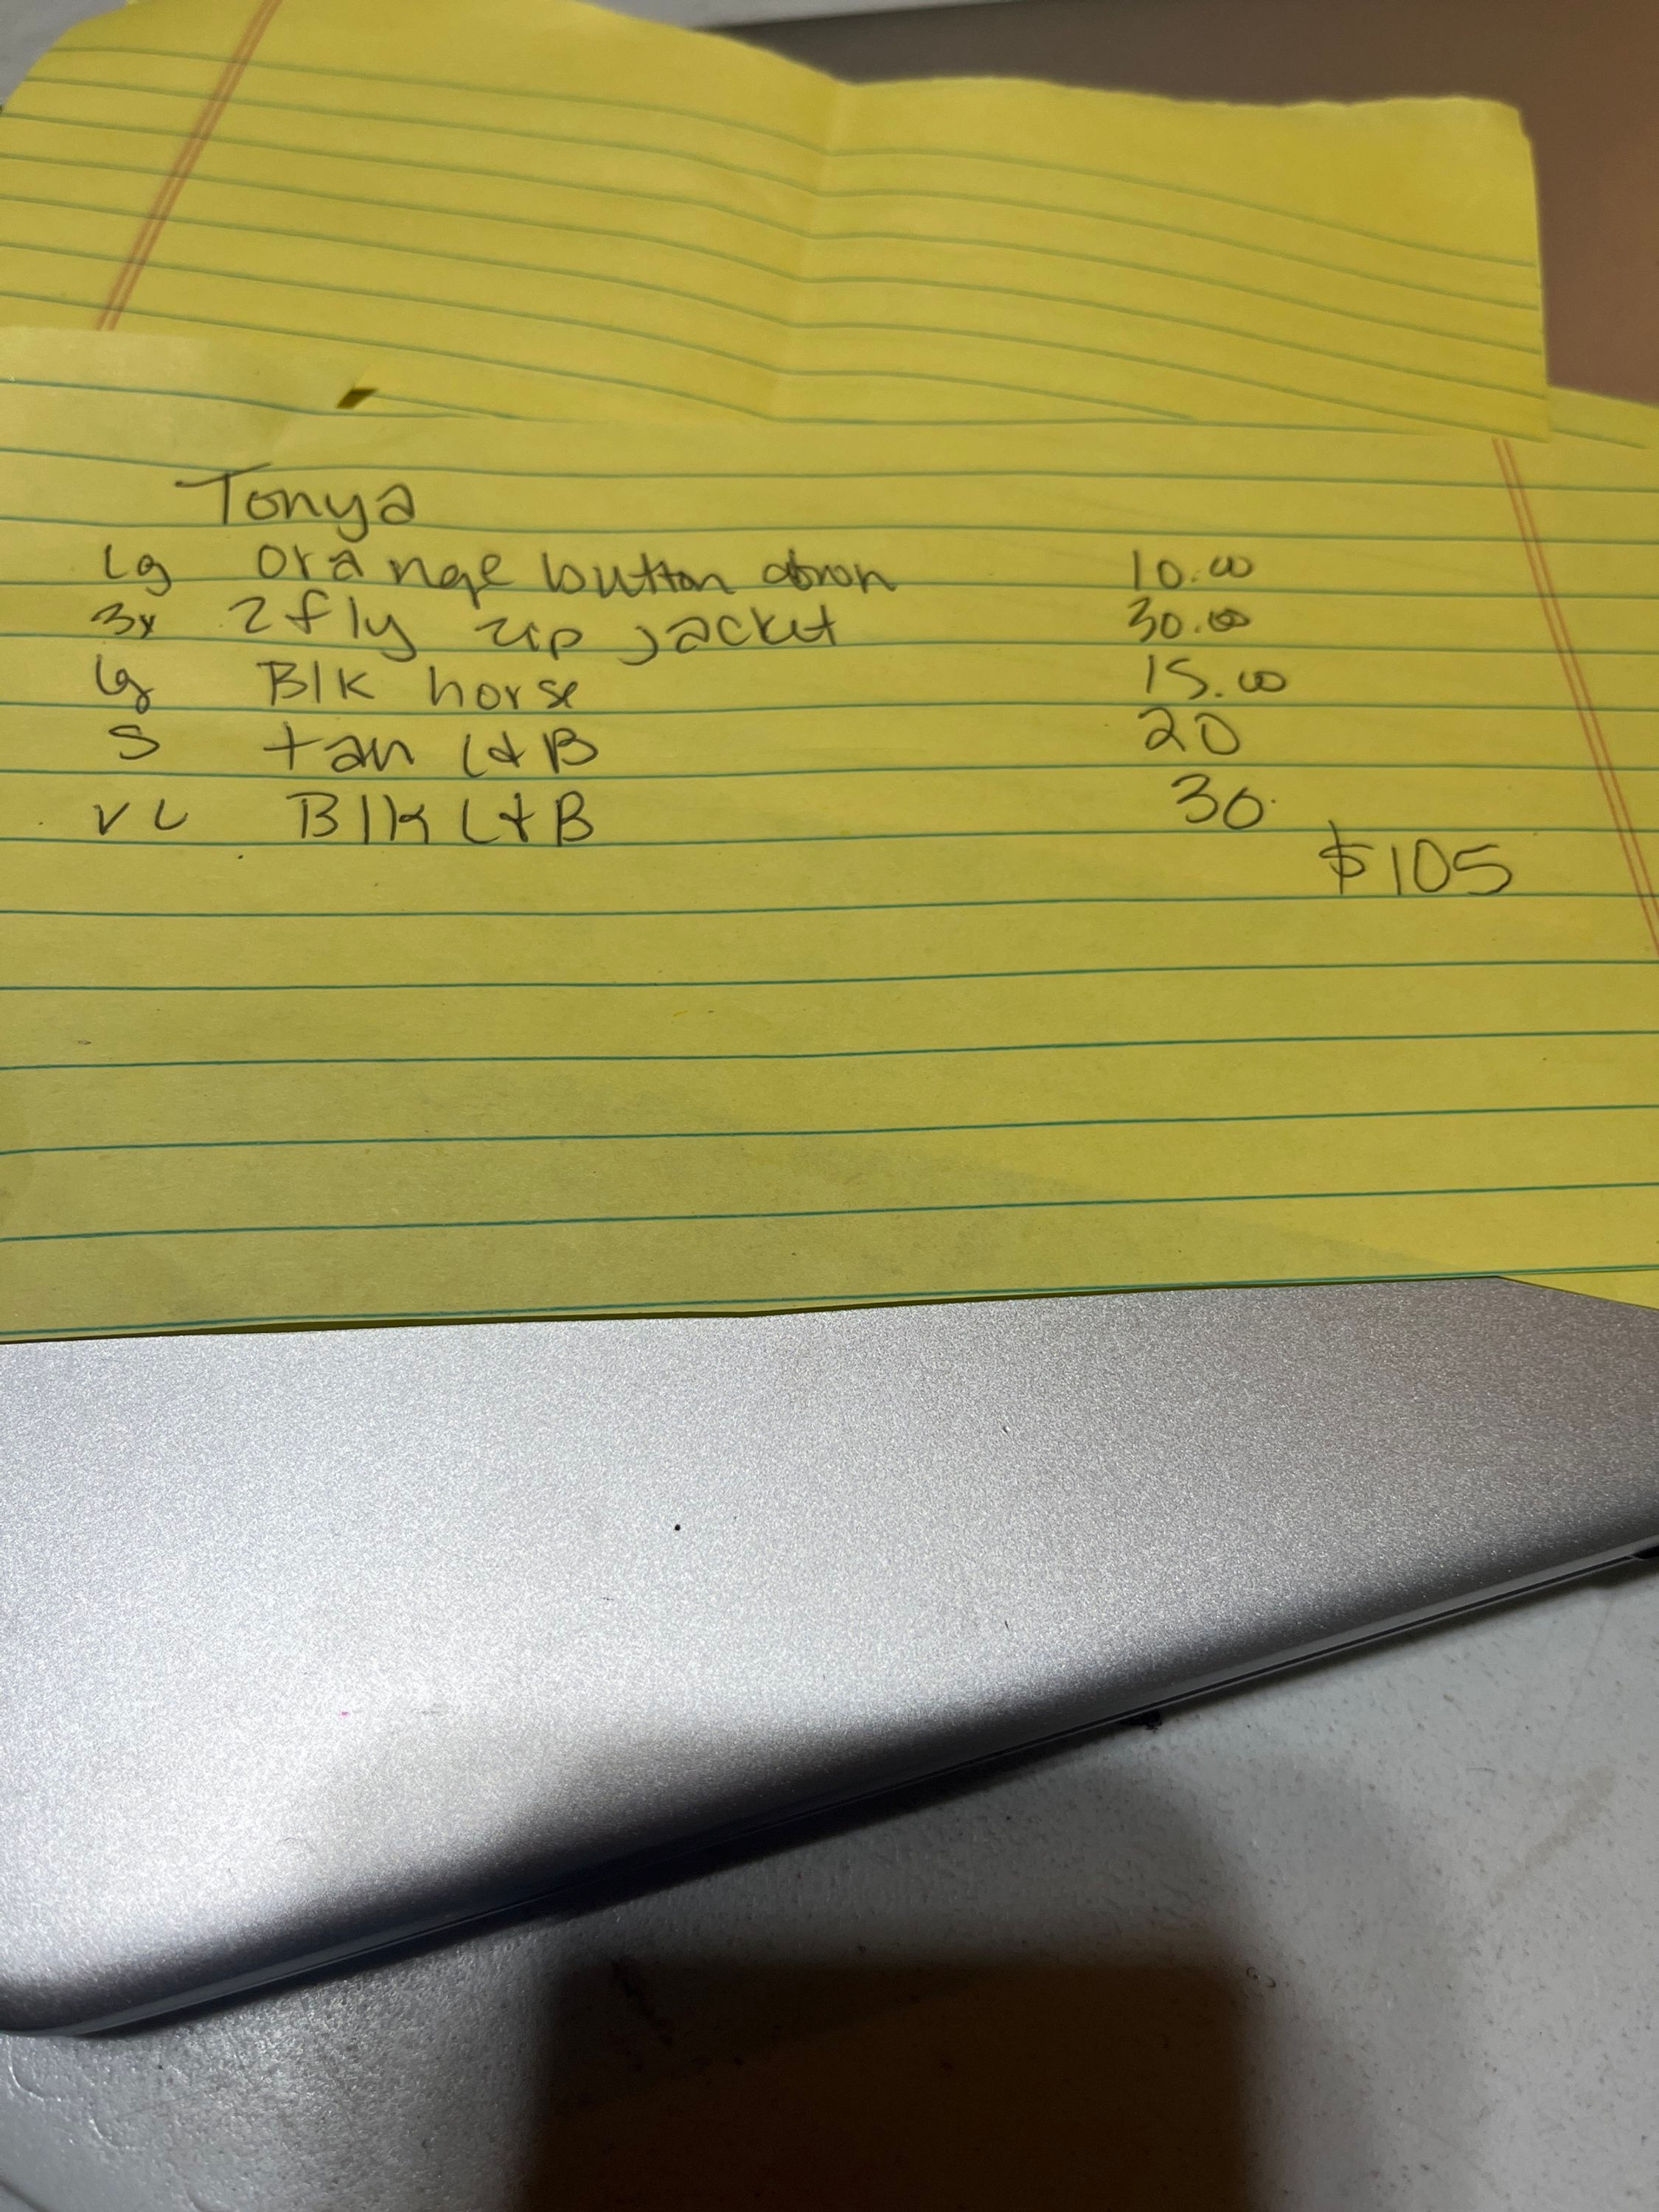 Tonya
Lg orange button down 10.00
3x 2fly zip jacket 30.00
Lg Blk horse 15.00
S tan L+B 20
VL Blk L+B 30
$105